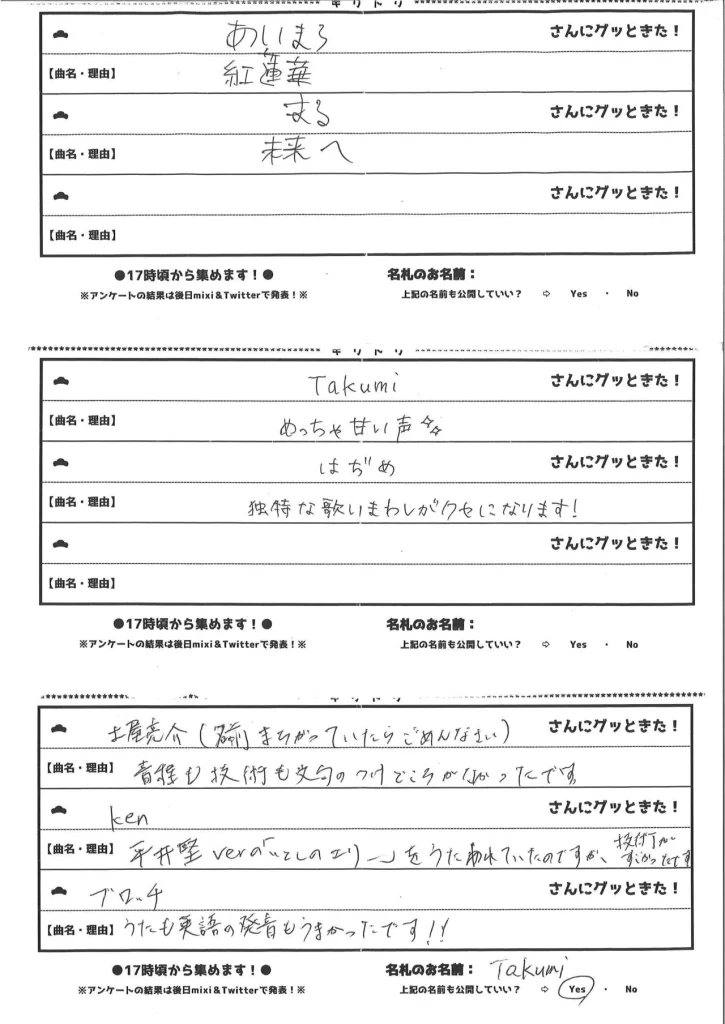 キリトリ
あいまろ さんにグッときた！
【曲名・理由】 紅蓮華
まる さんにグッときた！
【曲名・理由】 未来へ
さんにグッときた！
【曲名・理由】
●17時頃から集めます！● 名札のお名前：
※アンケートの結果は後日mixi＆Twitterで発表！※ 上記の名前も公開していい？ ⇨ Yes ・ No
キリトリ
Takumi さんにグッときた！
【曲名・理由】 めっちゃ甘い声☆☆
はぢめ さんにグッときた！
【曲名・理由】 独特な歌いまわしがクセになります！
さんにグッときた！
【曲名・理由】
●17時頃から集めます！● 名札のお名前：
※アンケートの結果は後日mixi＆Twitterで発表！※ 上記の名前も公開していい？ ⇨ Yes ・ No
キリトリ
土屋亮介 ( まちがっていたらごめんなさい) さんにグッときた！
【曲名・理由】 音程も技術も文句のつけどころがなかったです
ken さんにグッときた！
【曲名・理由】 平井堅verの「いとしのエリー」をうたわれていたのですが、技術がすごかったです
ブロッチ さんにグッときた！
【曲名・理由】 うたも英語の発音もうまかったです!!
●17時頃から集めます！● 名札のお名前： Takumi
※アンケートの結果は後日mixi＆Twitterで発表！※ 上記の名前も公開していい？ ⇨ Yes ・ No